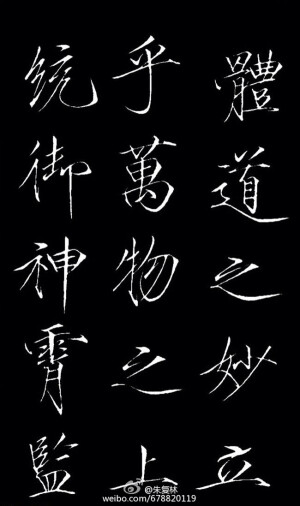 體道之妙立
乎萬物之上
統御神霄監
@朱复林
weibo.com/678820119